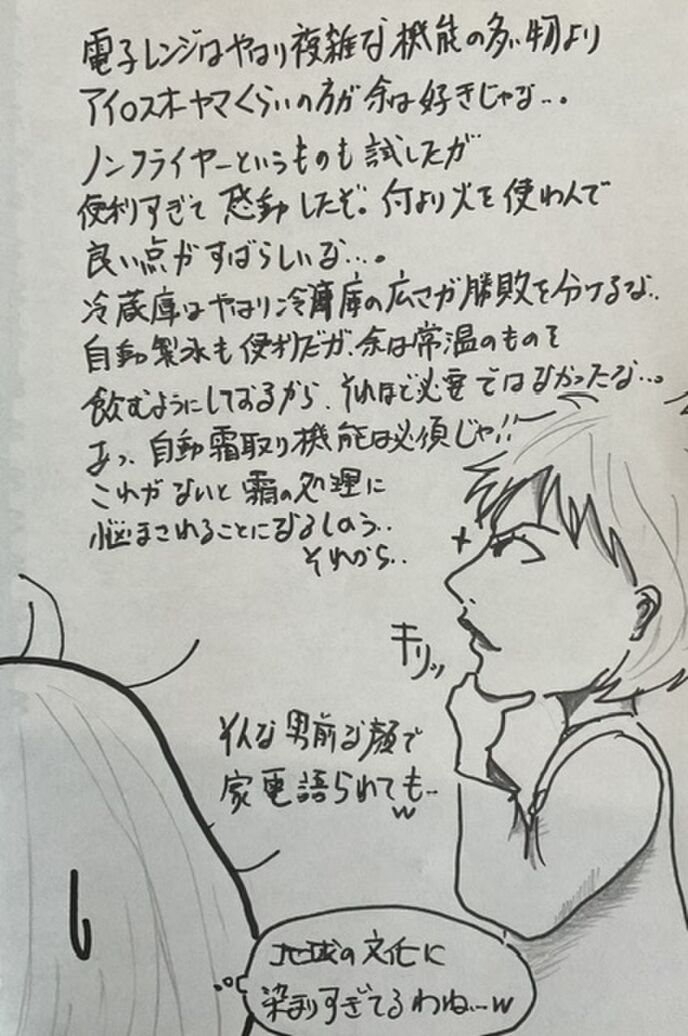 電子レンジはやはり複雑な機能の多い物より
アイロスオーヤマくらいの方が余は好きじゃな…。
ノンフライヤーというものも試したが
便利すぎて感動したぞ。何より火を使わんで
良い点がすばらしいな…。
冷蔵庫はやはり冷凍庫の広さが勝敗を分けるな..
自動製氷も便利だが、余は常温のものを
飲むようにしておるから、それほど必要ではなかったな…。
あっ、自動霜取り機能は必須じゃ!!
これがないと霜の処理に
悩まされることになるしのう..
それから..
キリッ
そんな男前な顔で
家電語られても..
w
地球の文化に
染まりすぎてるわね…w